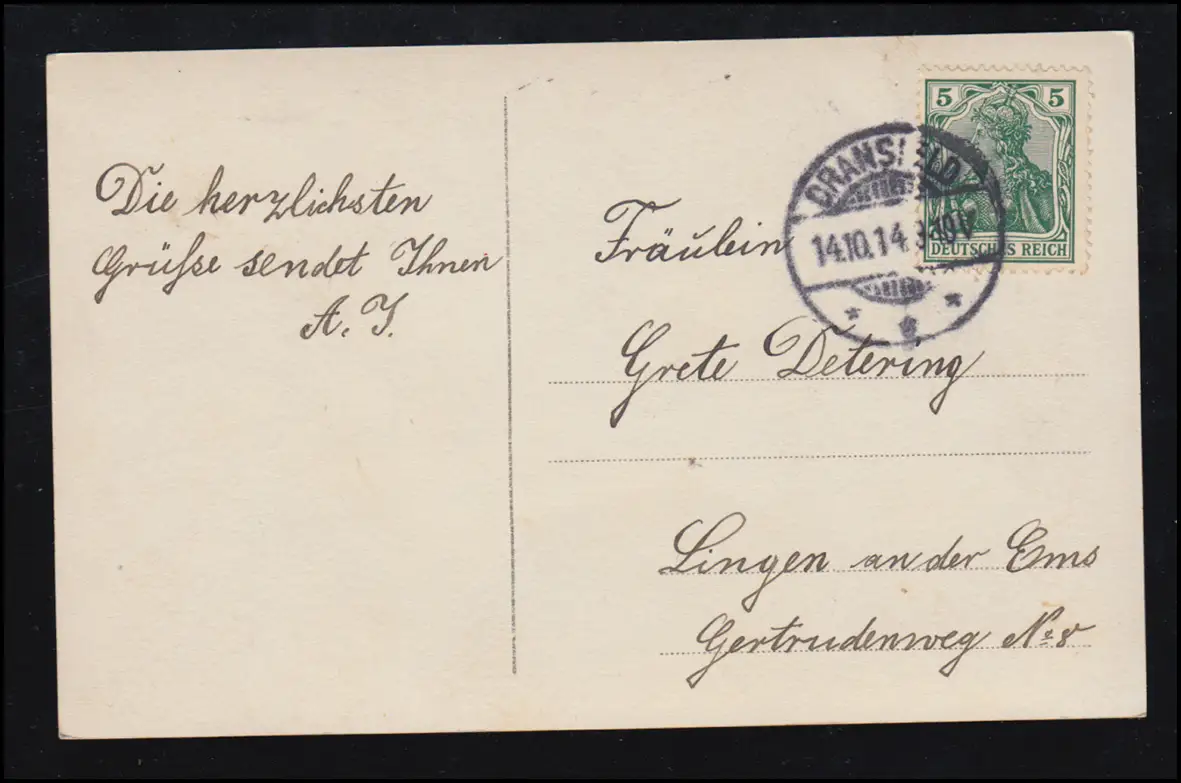 Die herzlichsten
Grüße sendet Ihnen
A. J.
5 5
DEUTSCHES REICH
DRANSFELD
14.10.14
10 V
Fräulein
Grete Detering
Lingen an der Ems
Gertrudenweg No 8